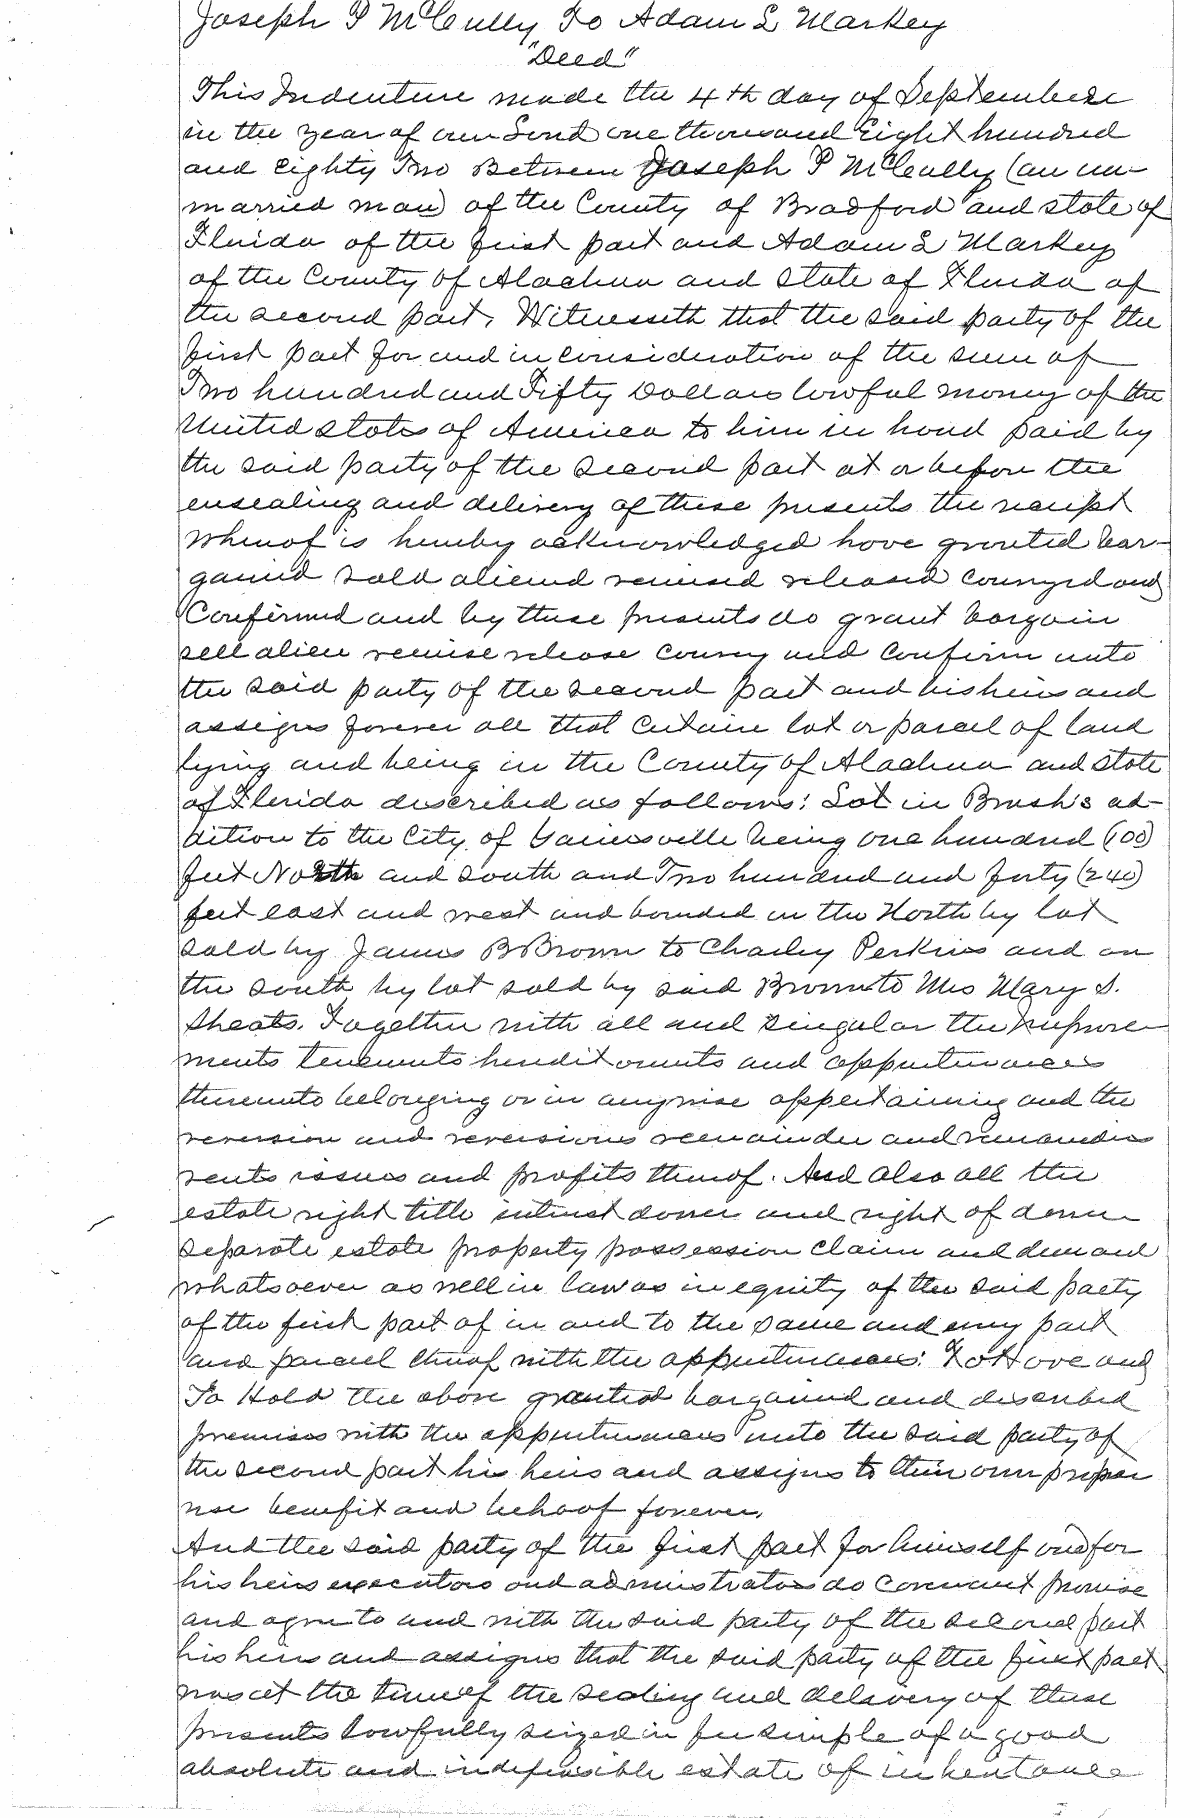 Joseph P McCully To Adam L Markey
"Deed"
This Indenture made the 4th day of September
in the year of our Lord one thousand Eight hundred
and eighty Two Between Joseph P McCully (an un-
married man) of the County of Bradford and state of
Florida of the first part and Adam L Markey
of the County of Alachua and state of Florida of
the second part, Witnesseth that the said party of the
first part for and in consideration of the sum of
Two hundred and Fifty Dollars lawful money of the
United states of America to him in hand paid by
the said party of the second part at or before the
ensealing and delivery of these presents the receipt
whereof is hereby acknowledged have granted bar-
gained sold aliened remised released conveyed and
Confirmed and by these presents do grant bargain
sell alien remise release convey and confirm unto
the said party of the second part and his heirs and
assigns forever all that certain lot or parcel of land
lying and being in the County of Alachua and state
of Florida described as follows: Lot in Brush's ad-
dition to the City of Gainesville being one hundred (100)
feet North and south and Two hundred and forty (240)
feet east and west and bounded on the North by lot
sold by James B Brown to Charley Perkins and on
the south by lot sold by said Brown to Mrs Mary S.
Sheats. Together with all and singular the Improve-
ments tenements hereditaments and appurtenances
thereunto belonging or in anywise appertaining and the
reversion and reversions remainder and remainders
rents issues and profits thereof. And also all the
estate right title interest dower and right of dower
separate estate property possession claim and demand
whatsoever as well in law as in equity of the said party
of the first part of in and to the same and every part
and parcel thereof with the appurtenances: To Have and
To Hold the above granted bargained and described
premises with the appurtenances unto the said party of
the second part his heirs and assigns to their own proper
use benefit and behoof forever.
And the said party of the first part for himself and for
his heirs executors and administrators do covenant promise
and agree to and with the said party of the second part
his heirs and assigns that the said party of the first part
was at the time of the sealing and delivery of these
presents lawfully seized in fee simple of a good
absolute and indefeasible estate of inheritance